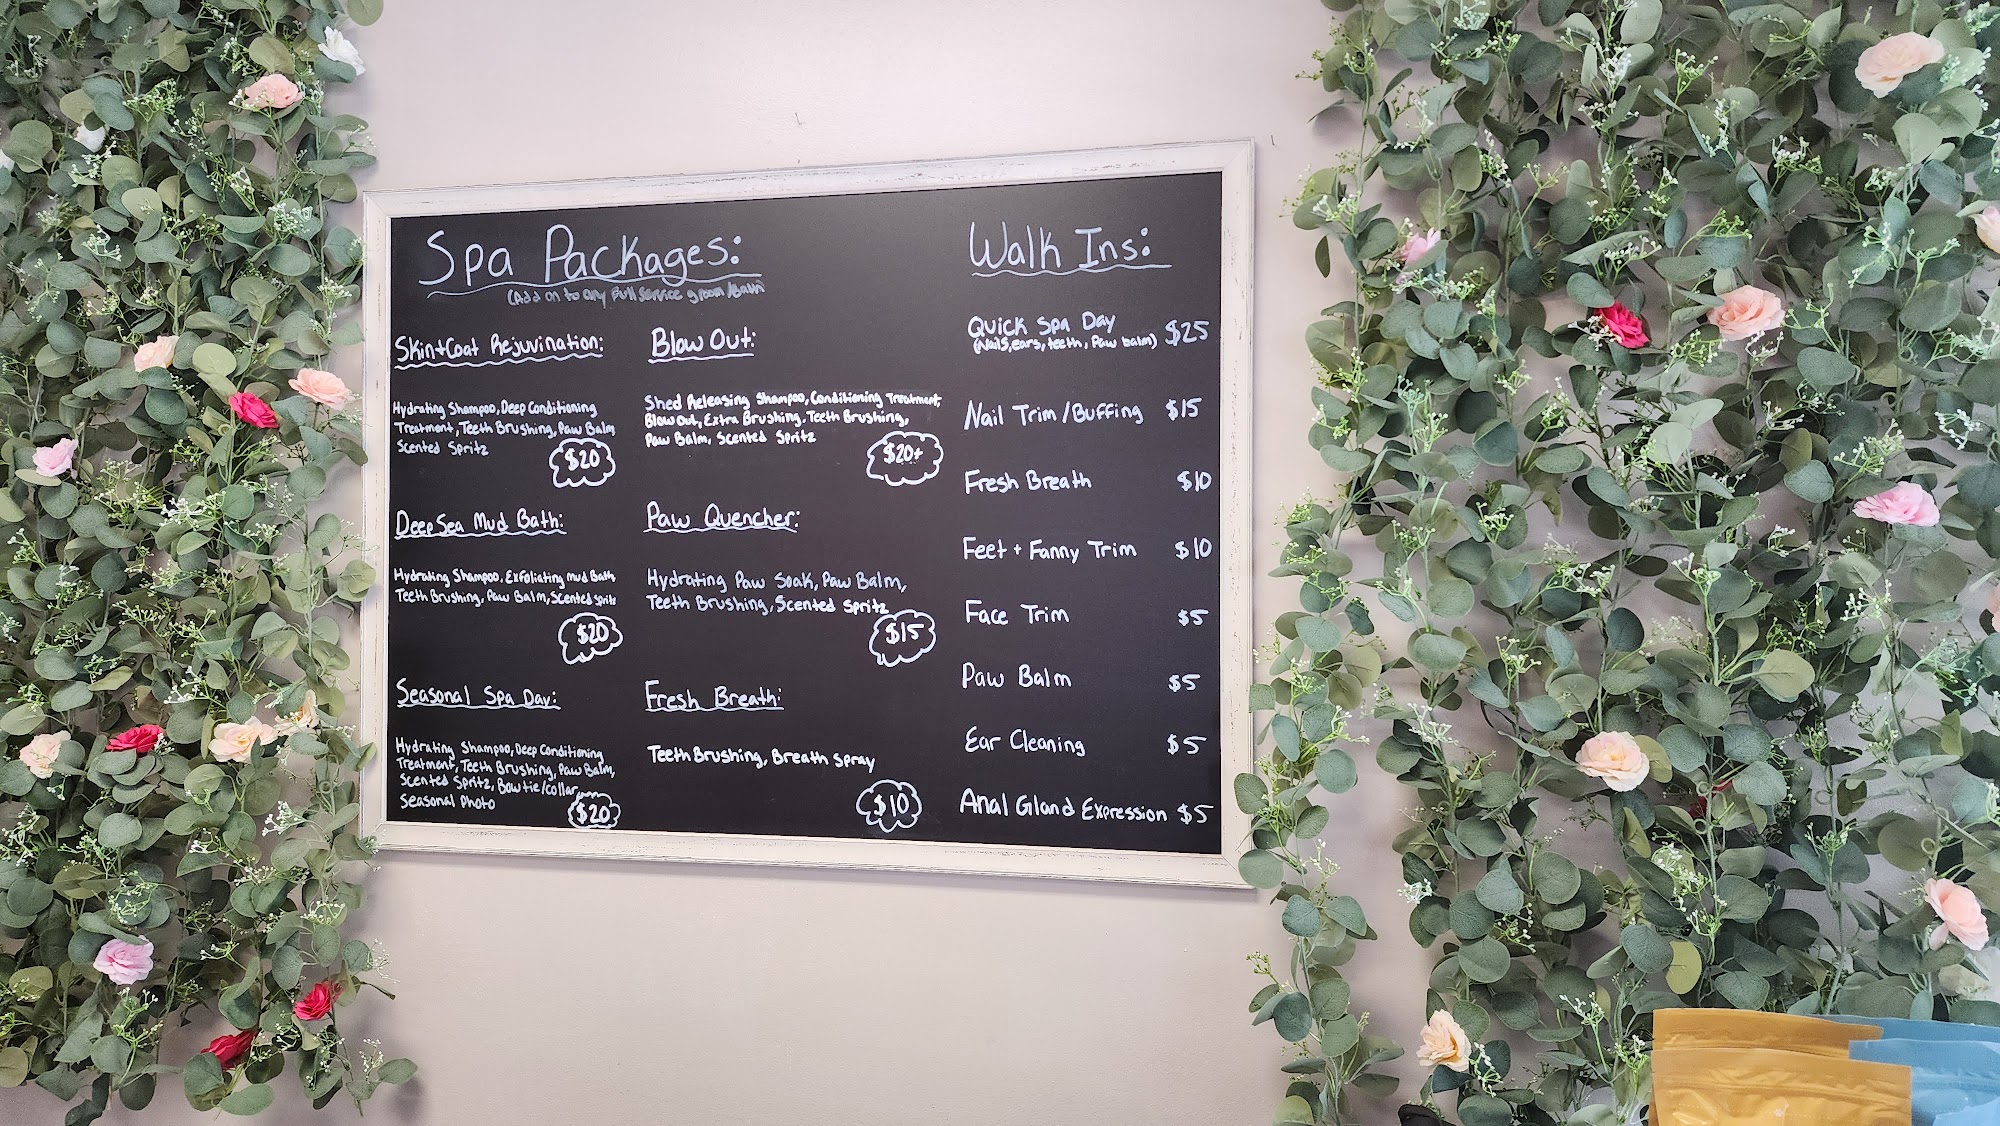 Spa Packages:
(Add on to any full service groom/Bath
Skin+Coat Rejuvination:
Hydrating Shampoo, Deep Conditioning
Treatment, Teeth Brushing, Paw Balm
Scented Spritz
$20
Deep Sea Mud Bath:
Hydrating Shampoo, Exfoliating mud Bath
Teeth Brushing, Paw Balm, Scented Sprits
$20
Seasonal Spa Day:
Hydrating Shampoo, Deep Conditioning
Treatment, Teeth Brushing, Paw Balm,
Scented Spritz, Bowtie/collar
Seasonal Photo
$20
Blow Out:
Shed Releasing Shampoo, Conditioning Treatment,
Blow Out, Extra Brushing, Teeth Brushing,
Paw Balm, Scented Spritz
$20+
Paw Quencher:
Hydrating Paw Soak, Paw Balm,
Teeth Brushing, Scented Spritz
$15
Fresh Breath:
Teeth Brushing, Breath Spray
$10
Walk Ins:
Quick Spa Day $25
(Nails, ears, teeth, Paw balm)
Nail Trim/Buffing $15
Fresh Breath $10
Feet + Fanny Trim $10
Face Trim $5
Paw Balm $5
Ear Cleaning $5
Anal Gland Expression $5